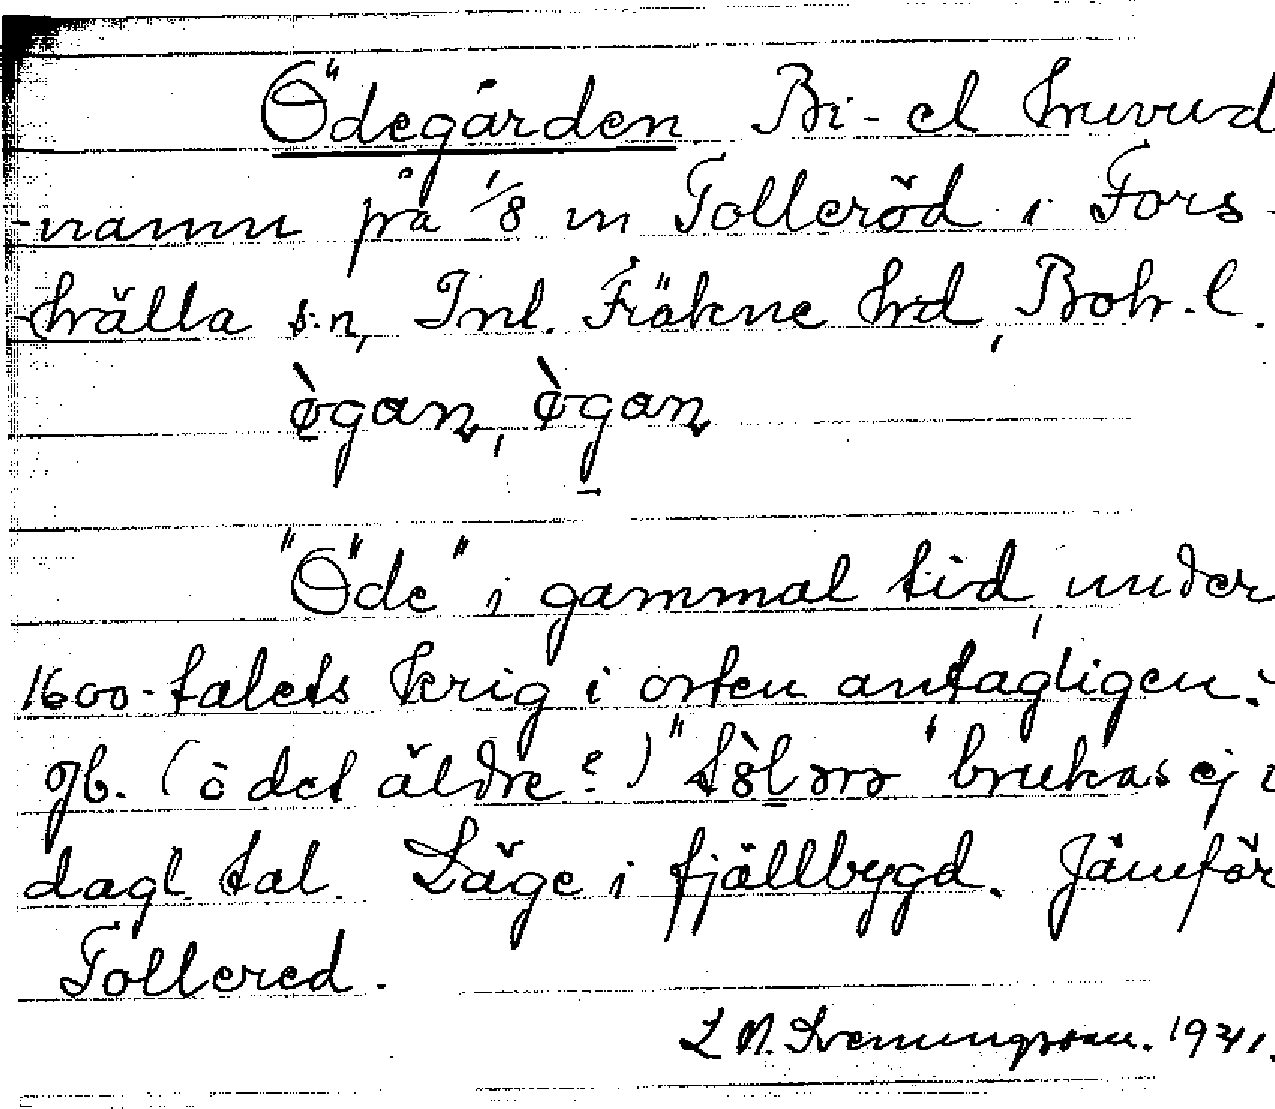 Ödegården Bi- el huvud
-namn på 1/8 m Tolleröd i Fors-
-hrälla s.n, Inl. Fräkne hrd, Boh. l.
ògan, ògan
"Öde" i gammal tid, under
1600-talets krig i orten antagligen.
gb. (ò det äldre?) brukas ej i
dagl. tal. Läge i fjällbygd. Jämför
Tollered.
L N. Svenungsson. 1931.